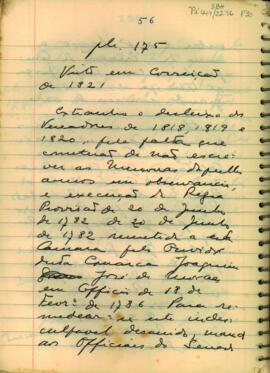 56
pl. 175
Visto em Correição
de 1821
Estranho o desleixo dos
Vereadores de 1818, 1819 e
1820, pela falta que
cometerão de não escre-
ver as Memorias daquelles
annos em observancia
e execução da Regia
Provisão de 20 de Junho
de 1782 de 20 de Junho
de 1782 remettida a esta
Camara pelo Ouvidor
desta Comarca Joaquim
José de Moraes
em Officio de 18 de
Fevr.º de 1786 Para re-
mediar-se este indes-
culpavel descuido, mando
aos Officiaes do Senado